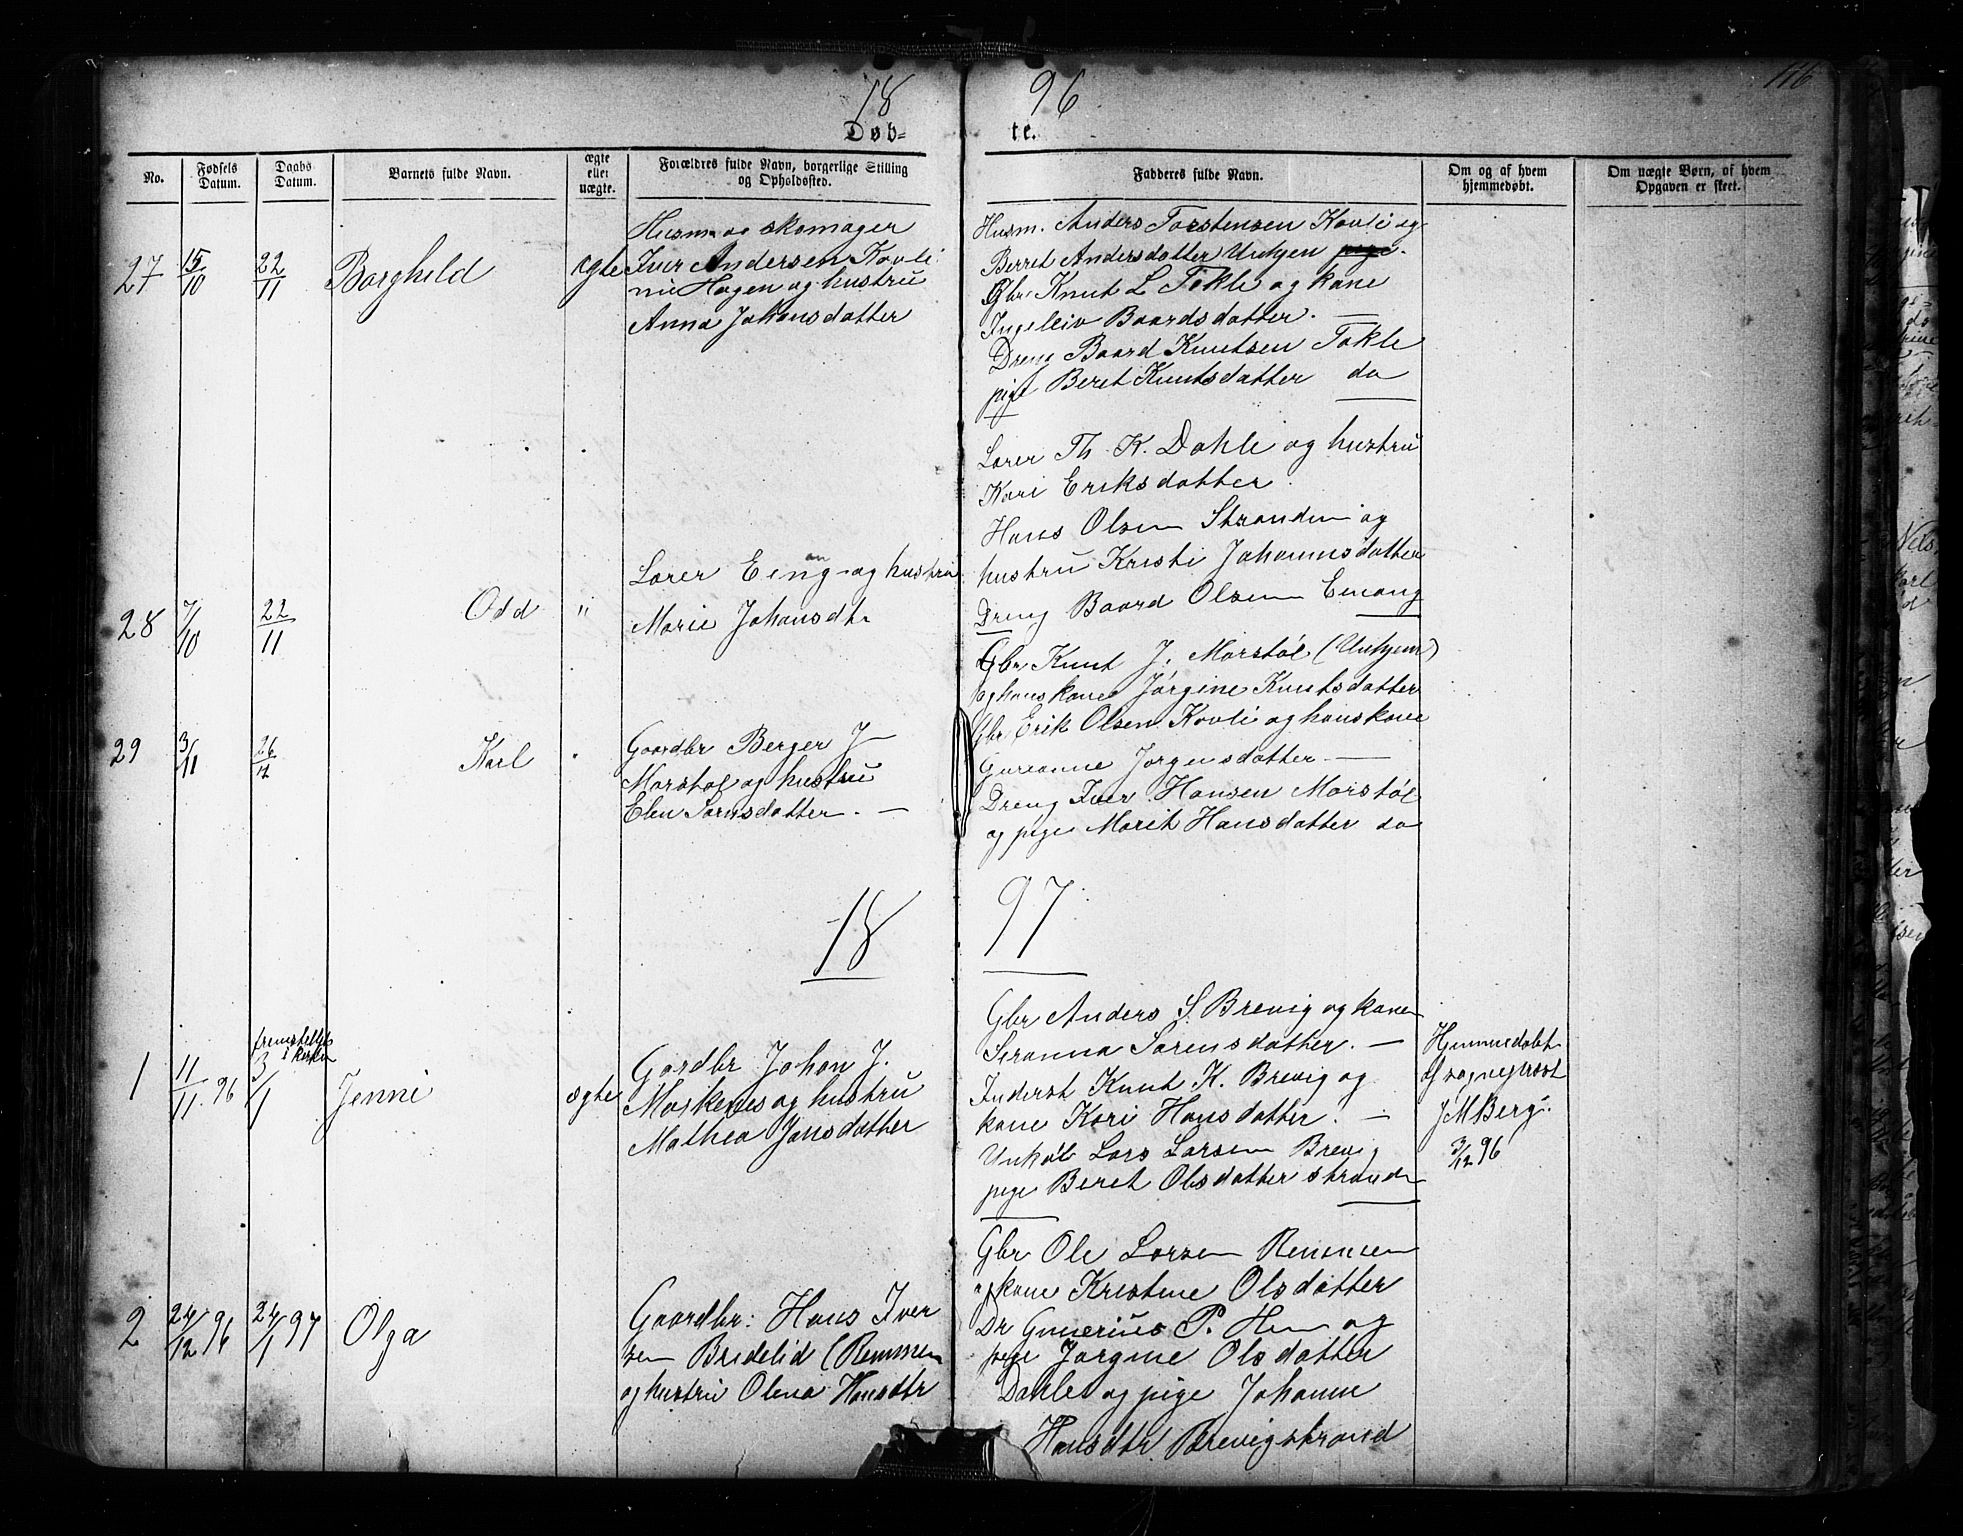 116
18 96
Døb- te.
No.
Fødsels Datum.
Daabs Datum.
Barnets fulde Navn.
ægte eller uægte.
Forældres fulde Navn, borgerlige Stilling og Opholdssted.
Fadderes fulde Navn.
Om og af hvem hjemmedøbt.
Om uægte Børn, af hvem Opgaven er skeet.
27 15/10 22/11 Borghild ægte
Husm og skomager
Iver Andersen Kovli
Hagen og hustru
Anna Johansdatter
Husm. Anders Torstensen Kovli og
Berret Andersdatter Unhjem
Gbr Knut L Tokle og kone
Ingeleiv Baardsdatter. —
Dreng Baard Knutsen Tokle
pige Beret Knutsdatter do
28 7/10 22/11 Odd "
Lærer Einang og hustru
Marie Johansdtr
Lærer Th. K. Dahle og hustru
Kari Eriksdatter.
Hans Olsen Stranden og
hustru Kristi Johannsdatter
Dreng Baard Olsen Einang
29 3/11 26/12 Karl "
Gaardbr Berger J
Morstøl og hustru
Elen Sørnsdatter. —
Gbr Knut J. Morstøl (Unhjem)
og hans kone Jørgine Knutsdatter
Gbr Erik Olsen Kovli og hans kone
Gurianne Jørgensdatter —
Dreng Iver Hansen Morstøl
og pige Marit Hansdatter do
18 97
1 11/11 96 fremstillet i kirken 3/1 Jenni ægte
Gardbr Johan J.
Moskenes og hustru
Mathea Jonsdatter
Gbr Anders S. Brevig og kone
Seranna Sørensdatter. —
Inderst Knut K. Brevig og
kone Kari Hansdatter. —
Unkal Lars Larsen Brevig
pige Beret Olsdatter Strande
Hjemmedøbt
af sogneprest
J M Berg.
3/12 96
2 24/12 96 24/1 97 Olga
Gaardbr: Hans Iver
sen Bredelid (Remmem
og hustru Olena Hansdtr
Gbr Ole Larsen Remmen
og kone Kristine Olsdatter
Dr Gunerius P. Hen og
pige Jørgine Olsdatter
Dahle og pige Johanne
Hansdtr Brevigstrand